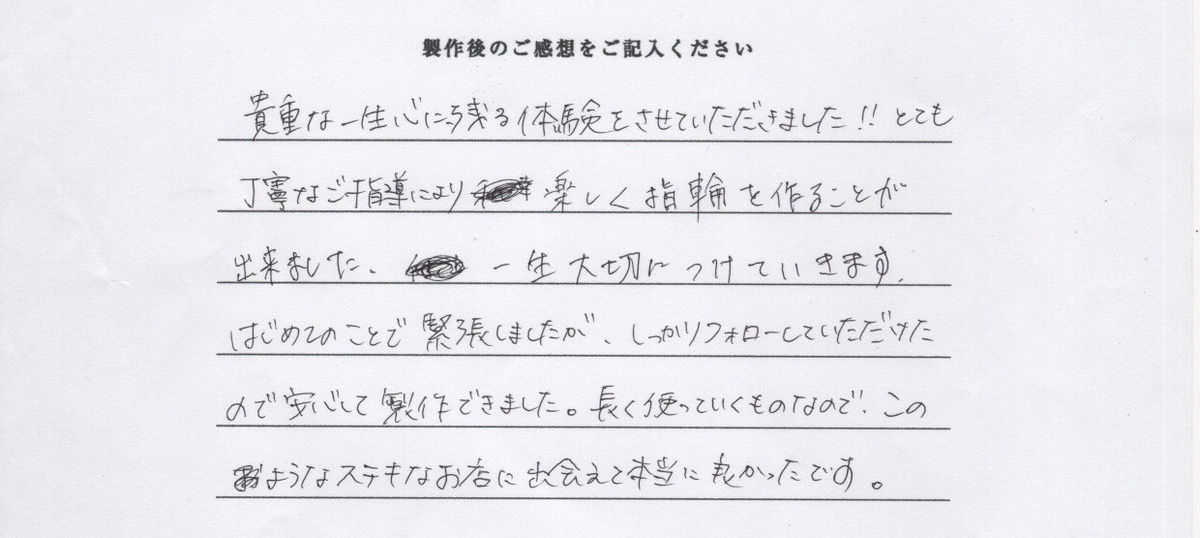 製作後のご感想をご記入ください
貴重な一生心に残る体験をさせていただきました!! とても
丁寧なご指導により 楽しく指輪を作ることが
出来ました、 一生大切につけていきます。
はじめてのことで緊張しましたが、しっかりフォローしていただけた
ので安心して製作できました。長く使っていくものなので、この
ようなステキなお店に出会えて本当に良かったです。